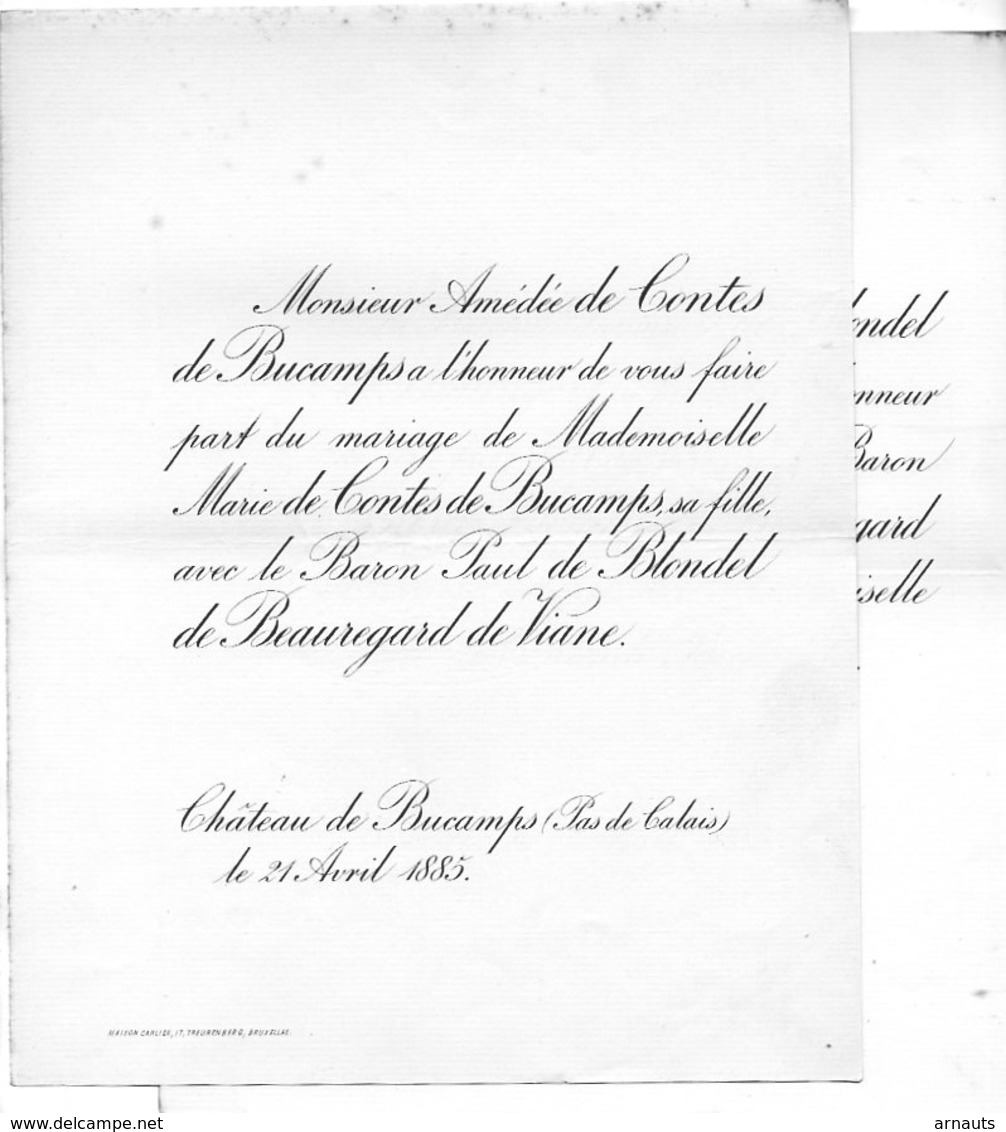 Monsieur Amédée de Contes
de Bucamps a l'honneur de vous faire
part du mariage de Mademoiselle
Marie de Contes de Bucamps, sa fille,
avec le Baron Paul de Blondel
de Beauregard de Viane.
Château de Bucamps (Pas de Calais)
le 21 Avril 1885.
MAISON CARLIER, 17, TREURENBERG, BRUXELLES.
ondel
onneur
Baron
gard
iselle
www.delcampe.net
arnauts